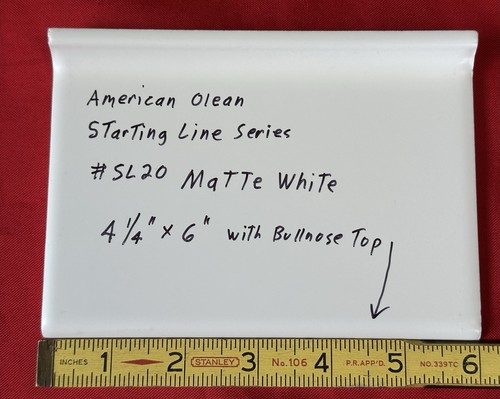 American Olean
Starting Line Series
#SL20 Matte White
4 1/4" x 6" with Bullnose Top
INCHES 1 2 STANLEY 3 No. 106 4 P.R. APP'D. 5 NO.339TC 6